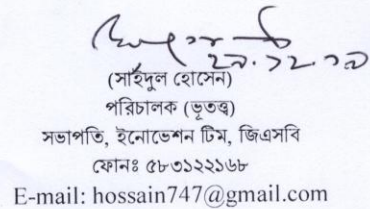 ২৯.১২.১৯
(সাইদুল হোসেন)
পরিচালক (ভূতত্ত্ব)
সভাপতি, ইনোভেশন টিম, জিএসবি
ফোনঃ ৫৮৩১২২১৬৮
E-mail: hossain747@gmail.com